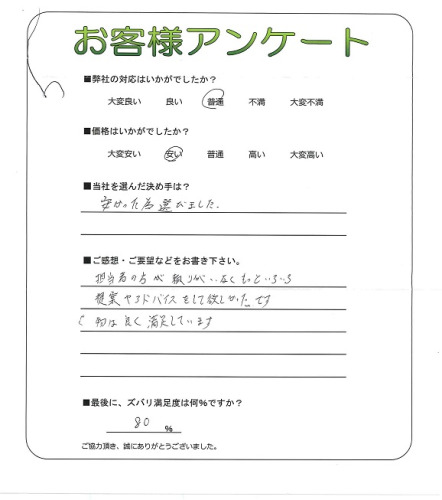 お客様アンケート
■弊社の対応はいかがでしたか?
大変良い 良い 普通 不満 大変不満
■価格はいかがでしたか?
大変安い 安い 普通 高い 大変高い
■当社を選んだ決め手は?
安かった為 選びました。
■ご感想・ご要望などをお書き下さい。
担当者の方が 頼りがいなくもっといろいろ
提案やアドバイスをして欲しかったです
物は良く 満足しています
■最後に、ズバリ満足度は何%ですか?
80 %
ご協力頂き、誠にありがとうございました。